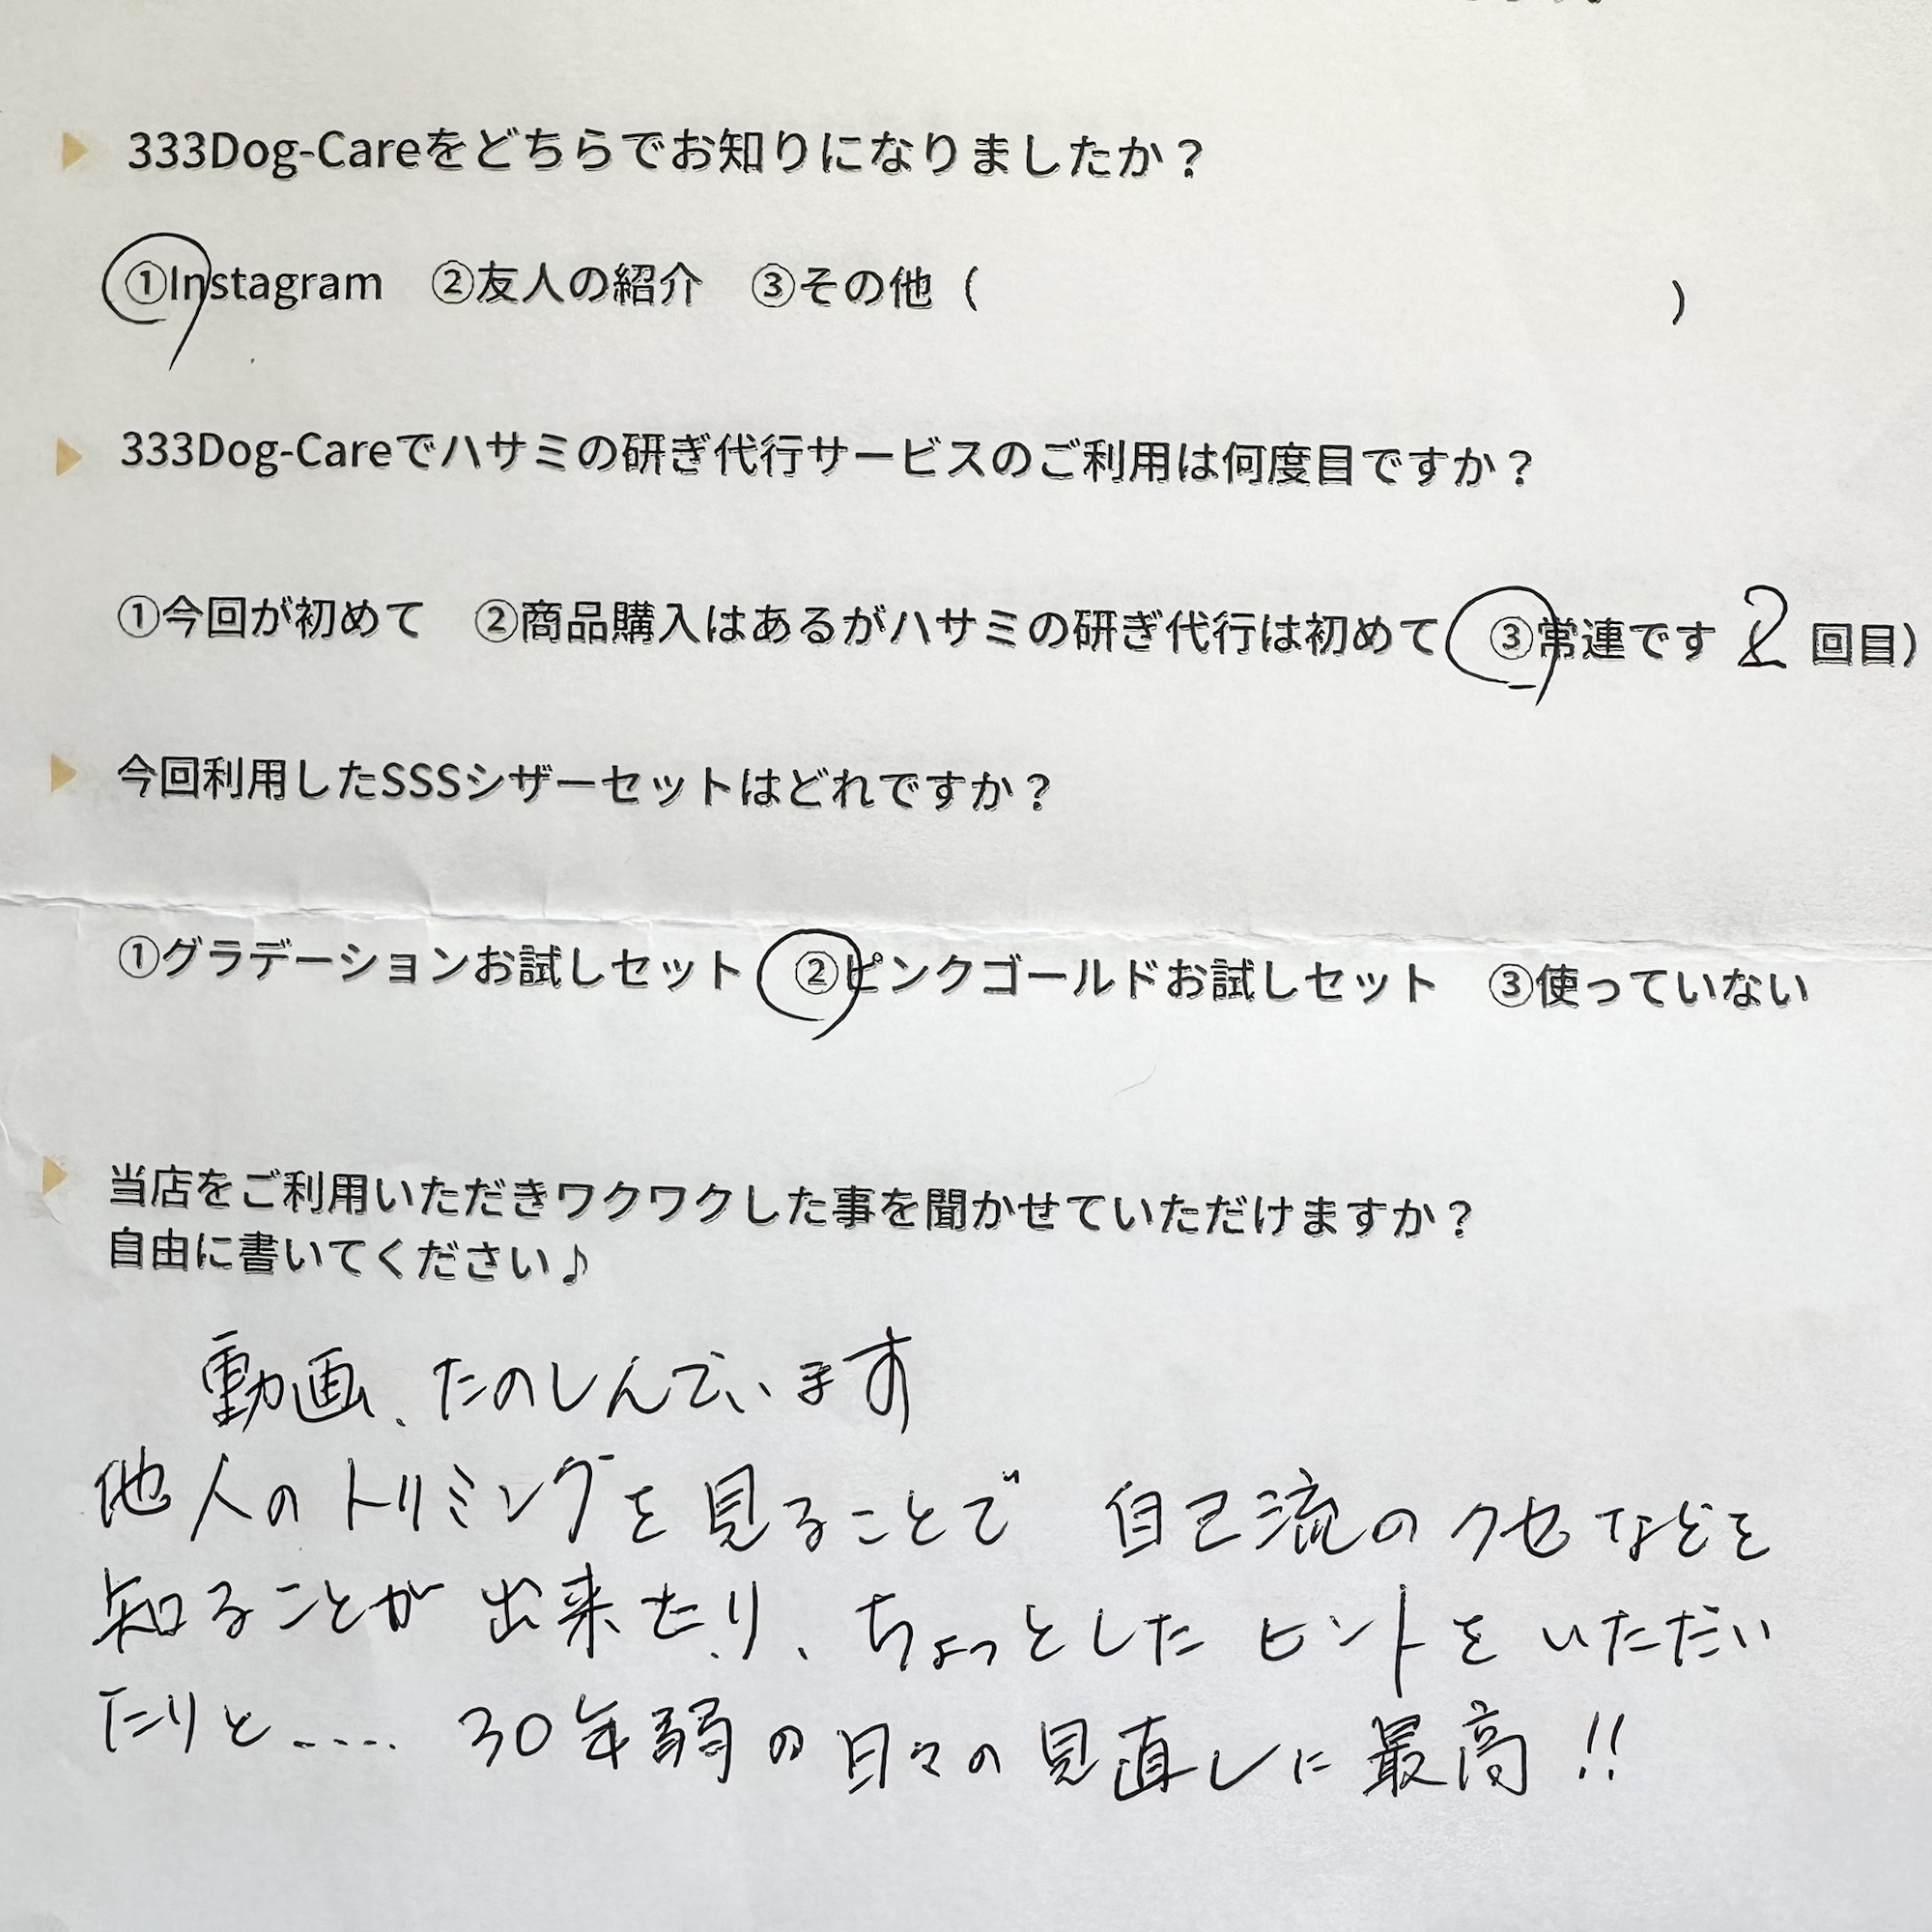 333Dog-Careをどちらでお知りになりましたか？
①Instagram　②友人の紹介　③その他（　　　　　　　　　　）
333Dog-Careでハサミの研ぎ代行サービスのご利用は何度目ですか？
①今回が初めて　②商品購入はあるがハサミの研ぎ代行は初めて　③常連です 2 回目）
今回利用したSSSシザーセットはどれですか？
①グラデーションお試しセット　②ピンクゴールドお試しセット　③使っていない
当店をご利用いただきワクワクした事を聞かせていただけますか？
自由に書いてください♪
動画、たのしんでいます
他人のトリミングを見ることで 自己流のクセなどを
知ることが出来たり、ちょっとしたヒントをいただい
たりと..... 30年弱の日々の見直しに最高!!